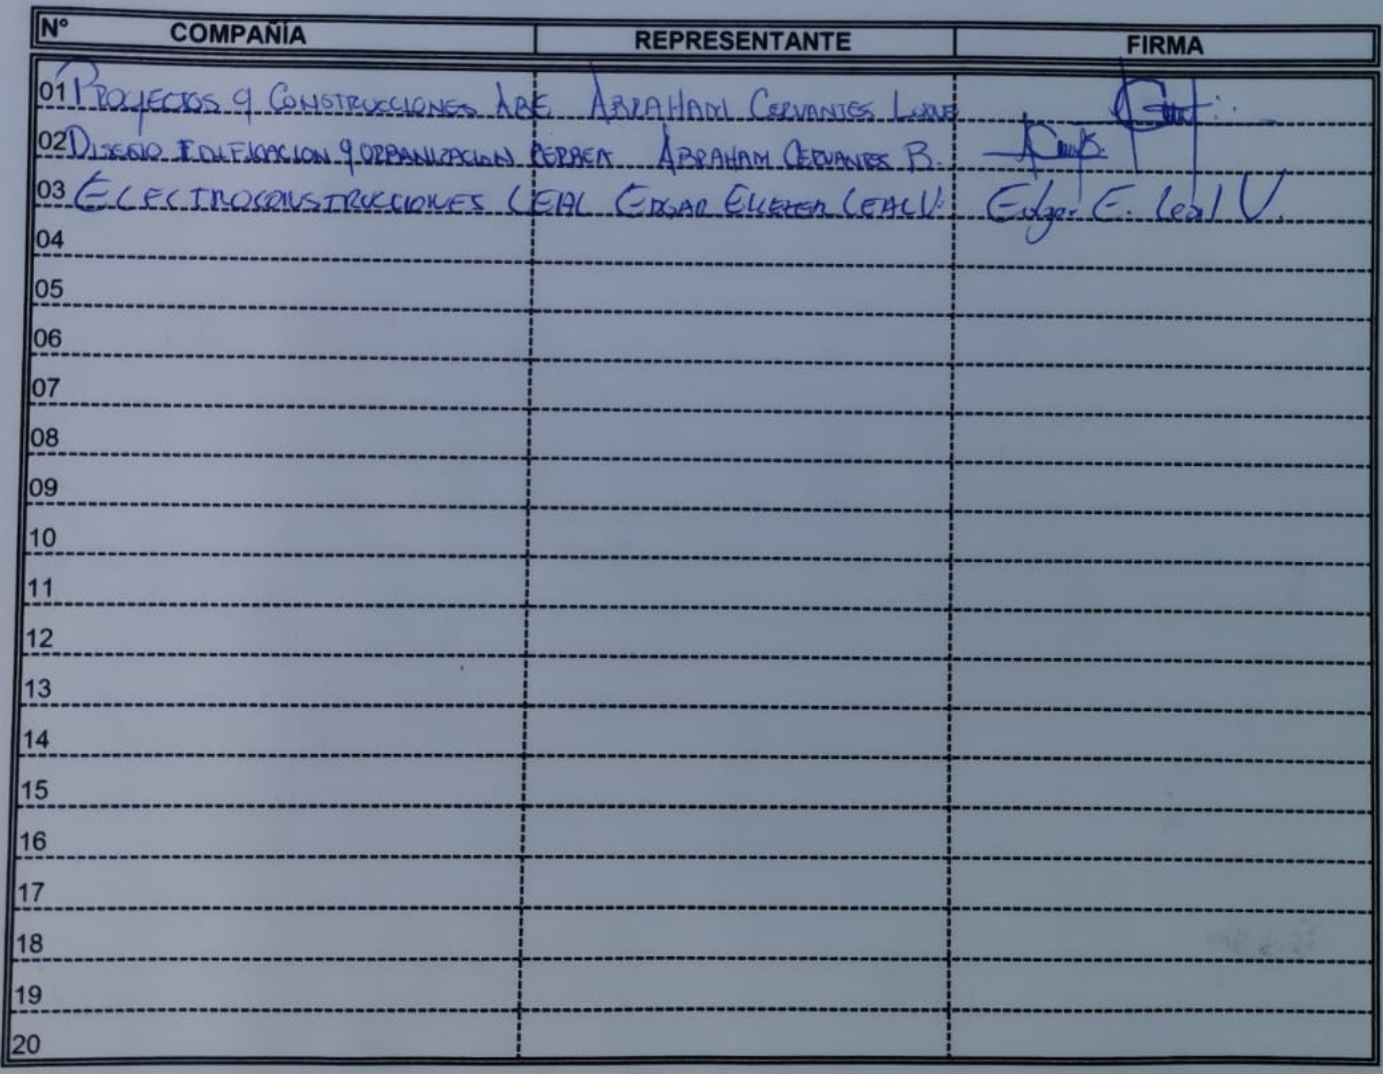 N° COMPAÑÍA REPRESENTANTE FIRMA
01 PROYECTOS Y CONSTRUCCIONES ABE ABRAHAM CERVANTES
02 DISEÑO EDIFICACION Y URBANIZACION ABRAHAM CERVANTES B.
03 ELECTROCONSTRUCCIONES LEAL EDGAR ELIEZER LEAL V. Edgar E. Leal V.
04
05
06
07
08
09
10
11
12
13
14
15
16
17
18
19
20